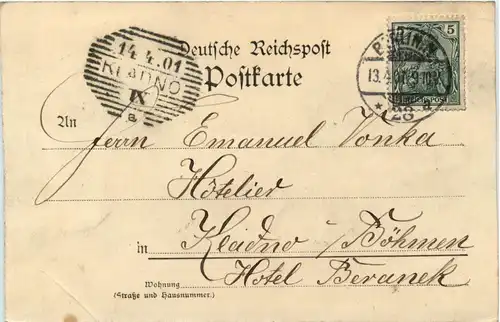 14.4.01
KLADNO
IX
a
Deutsche Reichspost
Postkarte
5
13.4.01. 9-10
28
An
Herrn Emanuel Vonka
Hôtelier
in Kladno Böhmen
Wohnung
(Straße und Hausnummer.)
Hotel Beranek